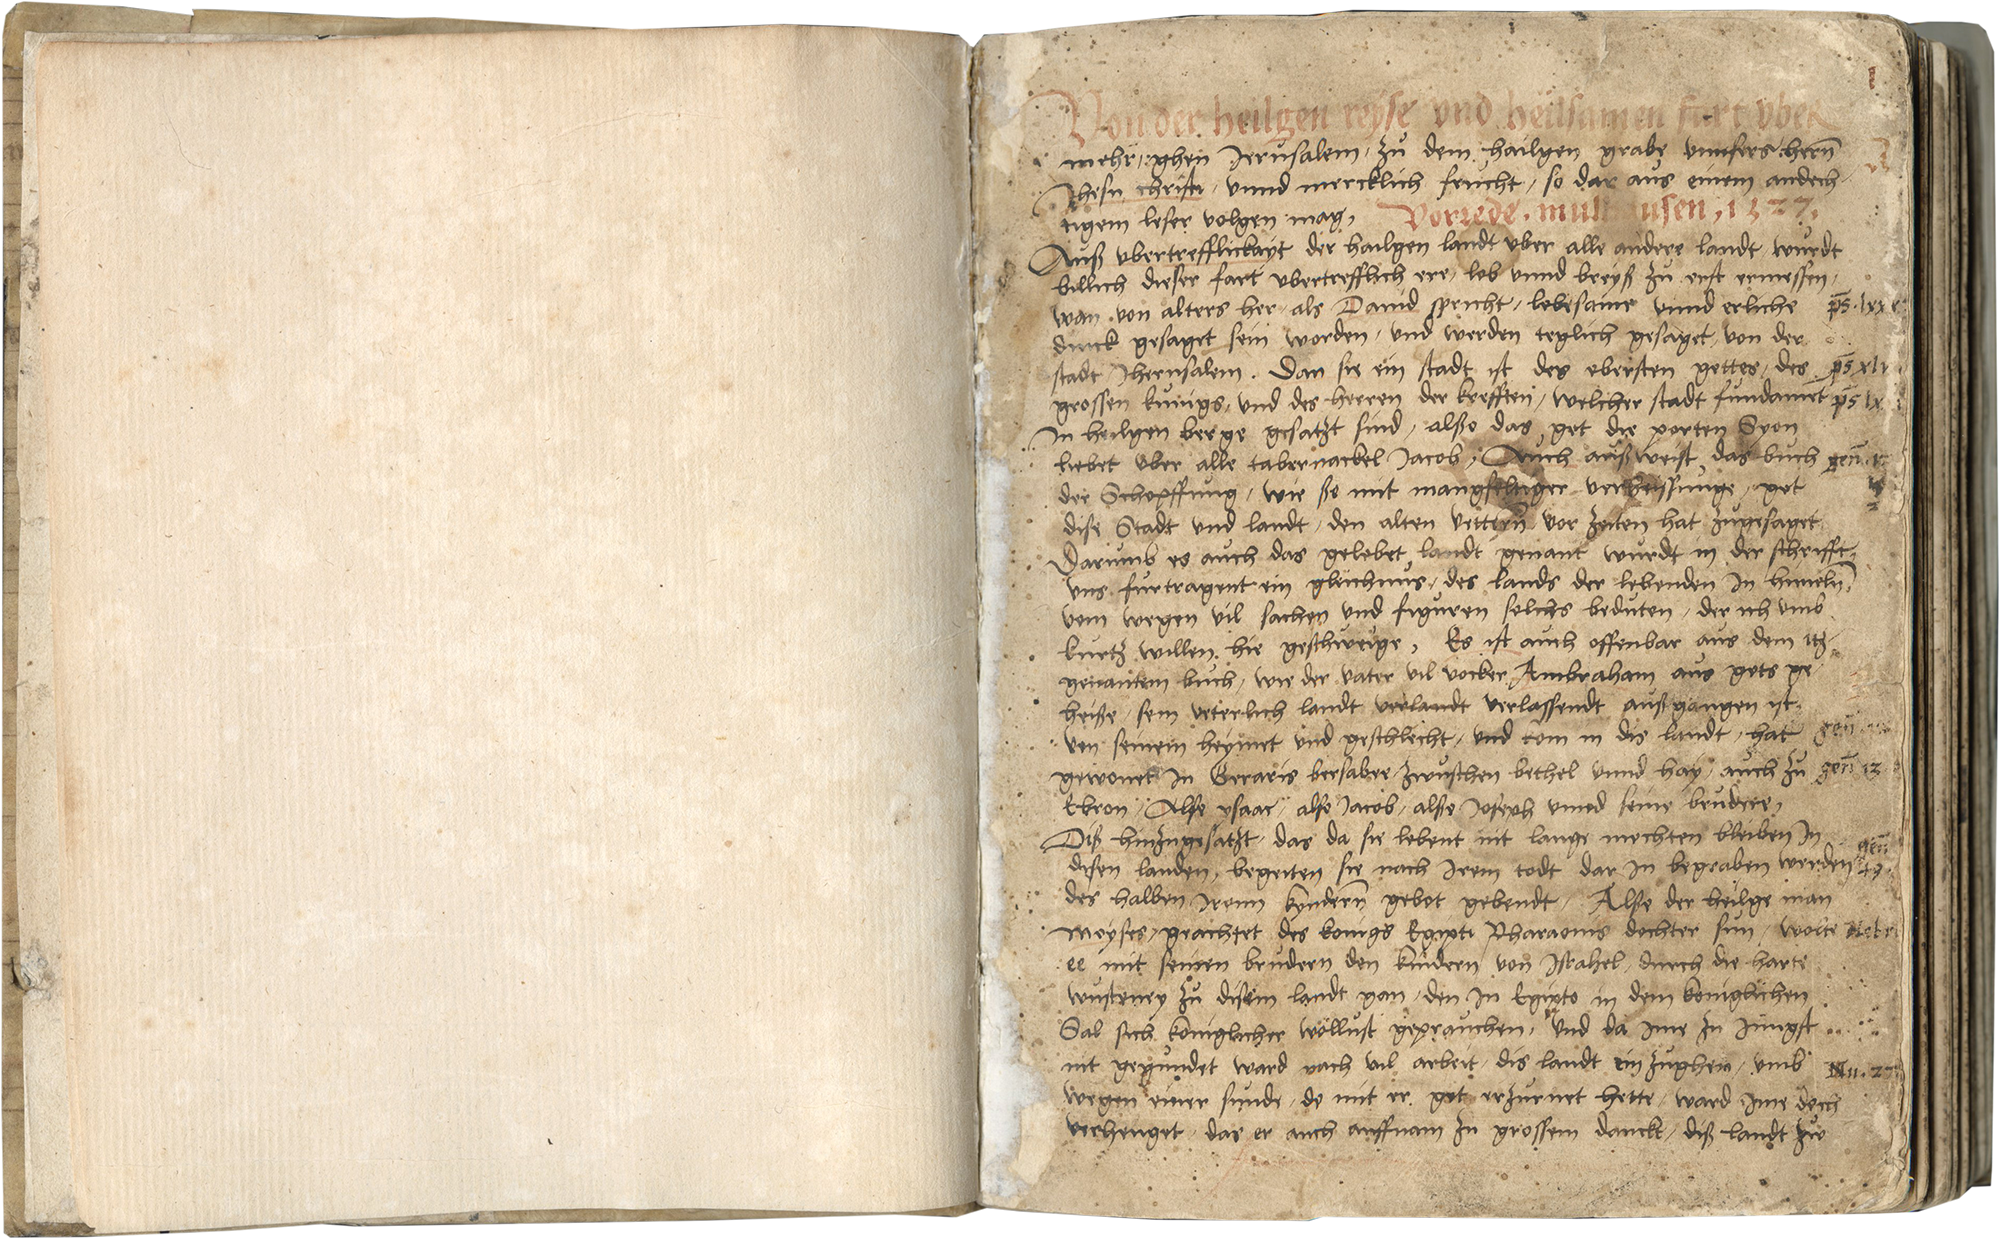 1
Von der heilgen reyse vnd heilsamen fart vber
mehr, ghen Jerusalem, zů dem hailgen grabe vnnsers hern̄
Jhesu christi, vnnd mercklich frucht, so dar aus einem andech
tigem leser volgen mag, Vorrede. mulhausen, 1527.
Auß vbertrefflickayt der hailgen landt vber alle andere landt wurdt
billich dieser fart vbertrefflich ere, lob vnnd breyß zů erst ermessen,
wan von alters her, als Dauid spricht, lobesame vnnd erliche ps. lxx
dinck gesaget sein worden, vnd werden teglich gesaget, von der
stadt Jherusalem. Dan sie ein stadt ist des obersten gottes, des ps. xlv
grossen kunigs, vnd des herren der krefften, welcher stadt fundament ps lx
In heilgen berge gesatzt sind, alßo das got die porten Syon
liebet vber alle tabernackel Jacob, Auch außweist das buch gen̄.
der Schopffung, wie ße mit mangfeltiger verheissunge, got
dise Stadt vnd landt, den alten vettern̄ vor zeiten hat zugesaget
Darumb es auch das gelobet landt genant wurdt in der schrifft,
vns furtragent ein glichnus, des lands der lebenden In himeln̄,
vom wegen vil sachen vnd figuren solchs beduten, der ich vmb
kurtz willen hie geschweige, Es ist auch offenbar aus dem itz
genantem buch, wie der vater vil vocker Ambraham aus gots ge
heiße, sem veterlich landt verlandt verlassendt außgangen ist,
von seinem heymet vnd geschlecht, vnd com in dis landt, hat gen̄
gewonet In Geraris bersabee zwuschen bethel vnnd hay, auch zů gen̄ 13
Ebron, Alse ysaac, alse Jacob, alße Joseph vnnd seine brudere,
Diß hinzugesatzt, das da sie lebent nit lange mochten bleiben In gen̄
disen landen, begerten sie nach Irem todt dar In begraben werden 49.
des halben Irenn kyndern̄ gebot gebendt, Alße der heilge man
moyses, geachtet des konigs Egipti Pharaonis dochter sun, wolte
ee mit seinen brudern den kindern von Israhel, durch die harte
wusteney zů disem landt gan, den In Egipto in dem koniglichen
Sal sich koniglicher wollust geprauchen, Vnd da ime zu Jungst
nit gegundet ward nach vil arbeit, dis landt ein zughen, vmb Nu. 27
wegen einer sunde, do mit er got erzurnet hette, ward ime doch
verhenget, das er auch auffnam zu grossem danckt, diß landt zu